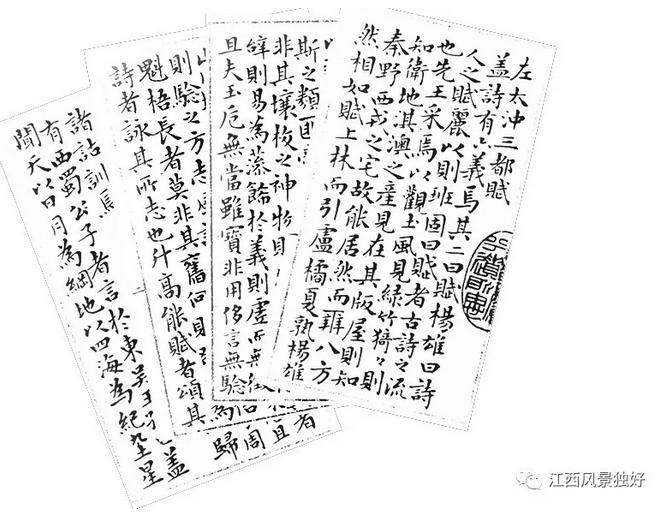 左太冲三都賦
盖詩有六義焉其二曰賦楊雄曰詩
人之賦麗以則班固曰賦者古詩之流
也先王采焉以觀土風見綠竹猗々則
知衛地淇澳之產見在其版屋則知
秦野西戎之宅故能居然而辨八方
然相如賦上林而引盧橘夏熟楊雄
斯之類匪
非其壤校之神物則
辞則易為藻飾於義則虛而無徵
且夫玉卮無當雖寶非用侈言無驗
則驗之方志
魁梧長者莫非其舊何則
詩者詠其所志也升高能賦者頌其
者
且
周
歸
諸詁訓焉
有西蜀公子者言於東吳王 盖
聞天以日月為綱地以四海為紀九土星
江西风景独好